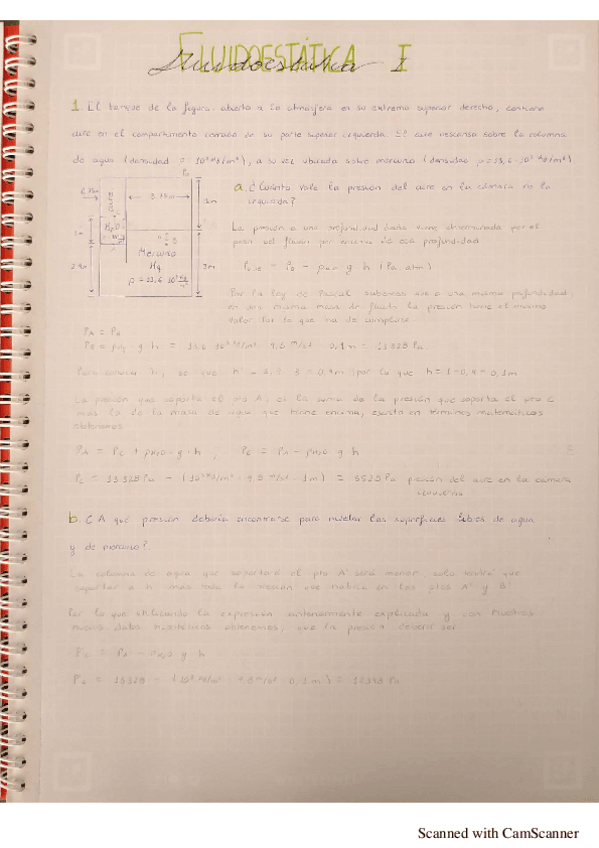 FLUIDOESTÁTICA I
Fluidoestática I
1. El tanque de la figura, abierto a la atmosfera en su extremo superior derecho, contiene
aire en el compartimento cerrado de su parte superior izquierda. El aire descansa sobre la columna
de agua (densidad ρ = 10³ kg/m³), a su vez ubicada sobre mercurio (densidad ρ = 13,6 · 10³ kg/m³)
a. ¿Cuánto vale la presión del aire en la cámara de la
izquierda?
Mercurio
Hg
La presión a una profundidad dada viene determinada por el
peso del fluido por encima de esa profundidad
Por la ley de Pascal sabemos que a una misma profundidad,
de una misma masa de fluido la presión tiene el mismo
valor por lo que ha de cumplirse
P_A = P_B
Para conocer h, por lo que h = 1 - 0,9 = 0,1m
La presión que soporta el pto A, es la suma de la presión que soporta el pto C
más la de la masa de agua que tiene encima, escrito en términos matemáticos
obtenemos
P_A = P_C + ρ_H2O · g · h ; P_C = P_A - ρ_H2O g h
P_C = 13328 Pa - (10³ kg/m³ · 9,8 m/s² · 1m) = 3528 Pa presión del aire en la cámara
izquierda
b. ¿A qué presión debería encontrarse para nivelar las superficies libres de agua
y de mercurio?
La columna de agua que soportará el pto A' será menor, solo tendrá que
soportar a h más toda la presión que habría en los ptos A' y B'
Por lo que utilizando la expresión anteriormente explicada y con nuestros
nuevos datos hipotéticos obtenemos, que la presión deberá ser
P_C = P_A' - ρ_H2O g h
P_C = 13328 - (10³ kg/m³ · 9,8 m/s² · 0,1m) = 12348 Pa
Scanned with CamScanner